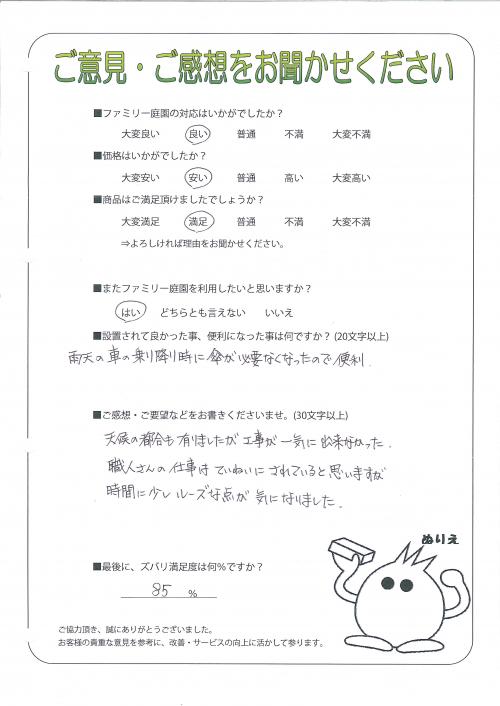 ご意見・ご感想をお聞かせください
■ファミリー庭園の対応はいかがでしたか？
大変良い 良い 普通 不満 大変不満
■価格はいかがでしたか？
大変安い 安い 普通 高い 大変高い
■商品はご満足頂けましたでしょうか？
大変満足 満足 普通 不満 大変不満
⇒よろしければ理由をお聞かせください。
■またファミリー庭園を利用したいと思いますか？
はい どちらとも言えない いいえ
■設置されて良かった事、便利になった事は何ですか？(20文字以上)
雨天の車の乗り降り時に傘が必要なくなったので便利.
■ご感想・ご要望などをお書きくださいませ。(30文字以上)
天候の都合も有りましたが工事が一気に出来なかった.
職人さんの仕事はていねいにされていると思いますが
時間に少しルーズな点が気になりました.
ぬりえ
■最後に、ズバリ満足度は何％ですか？
85 %
ご協力頂き、誠にありがとうございました。
お客様の貴重な意見を参考に、改善・サービスの向上に活かして参ります。